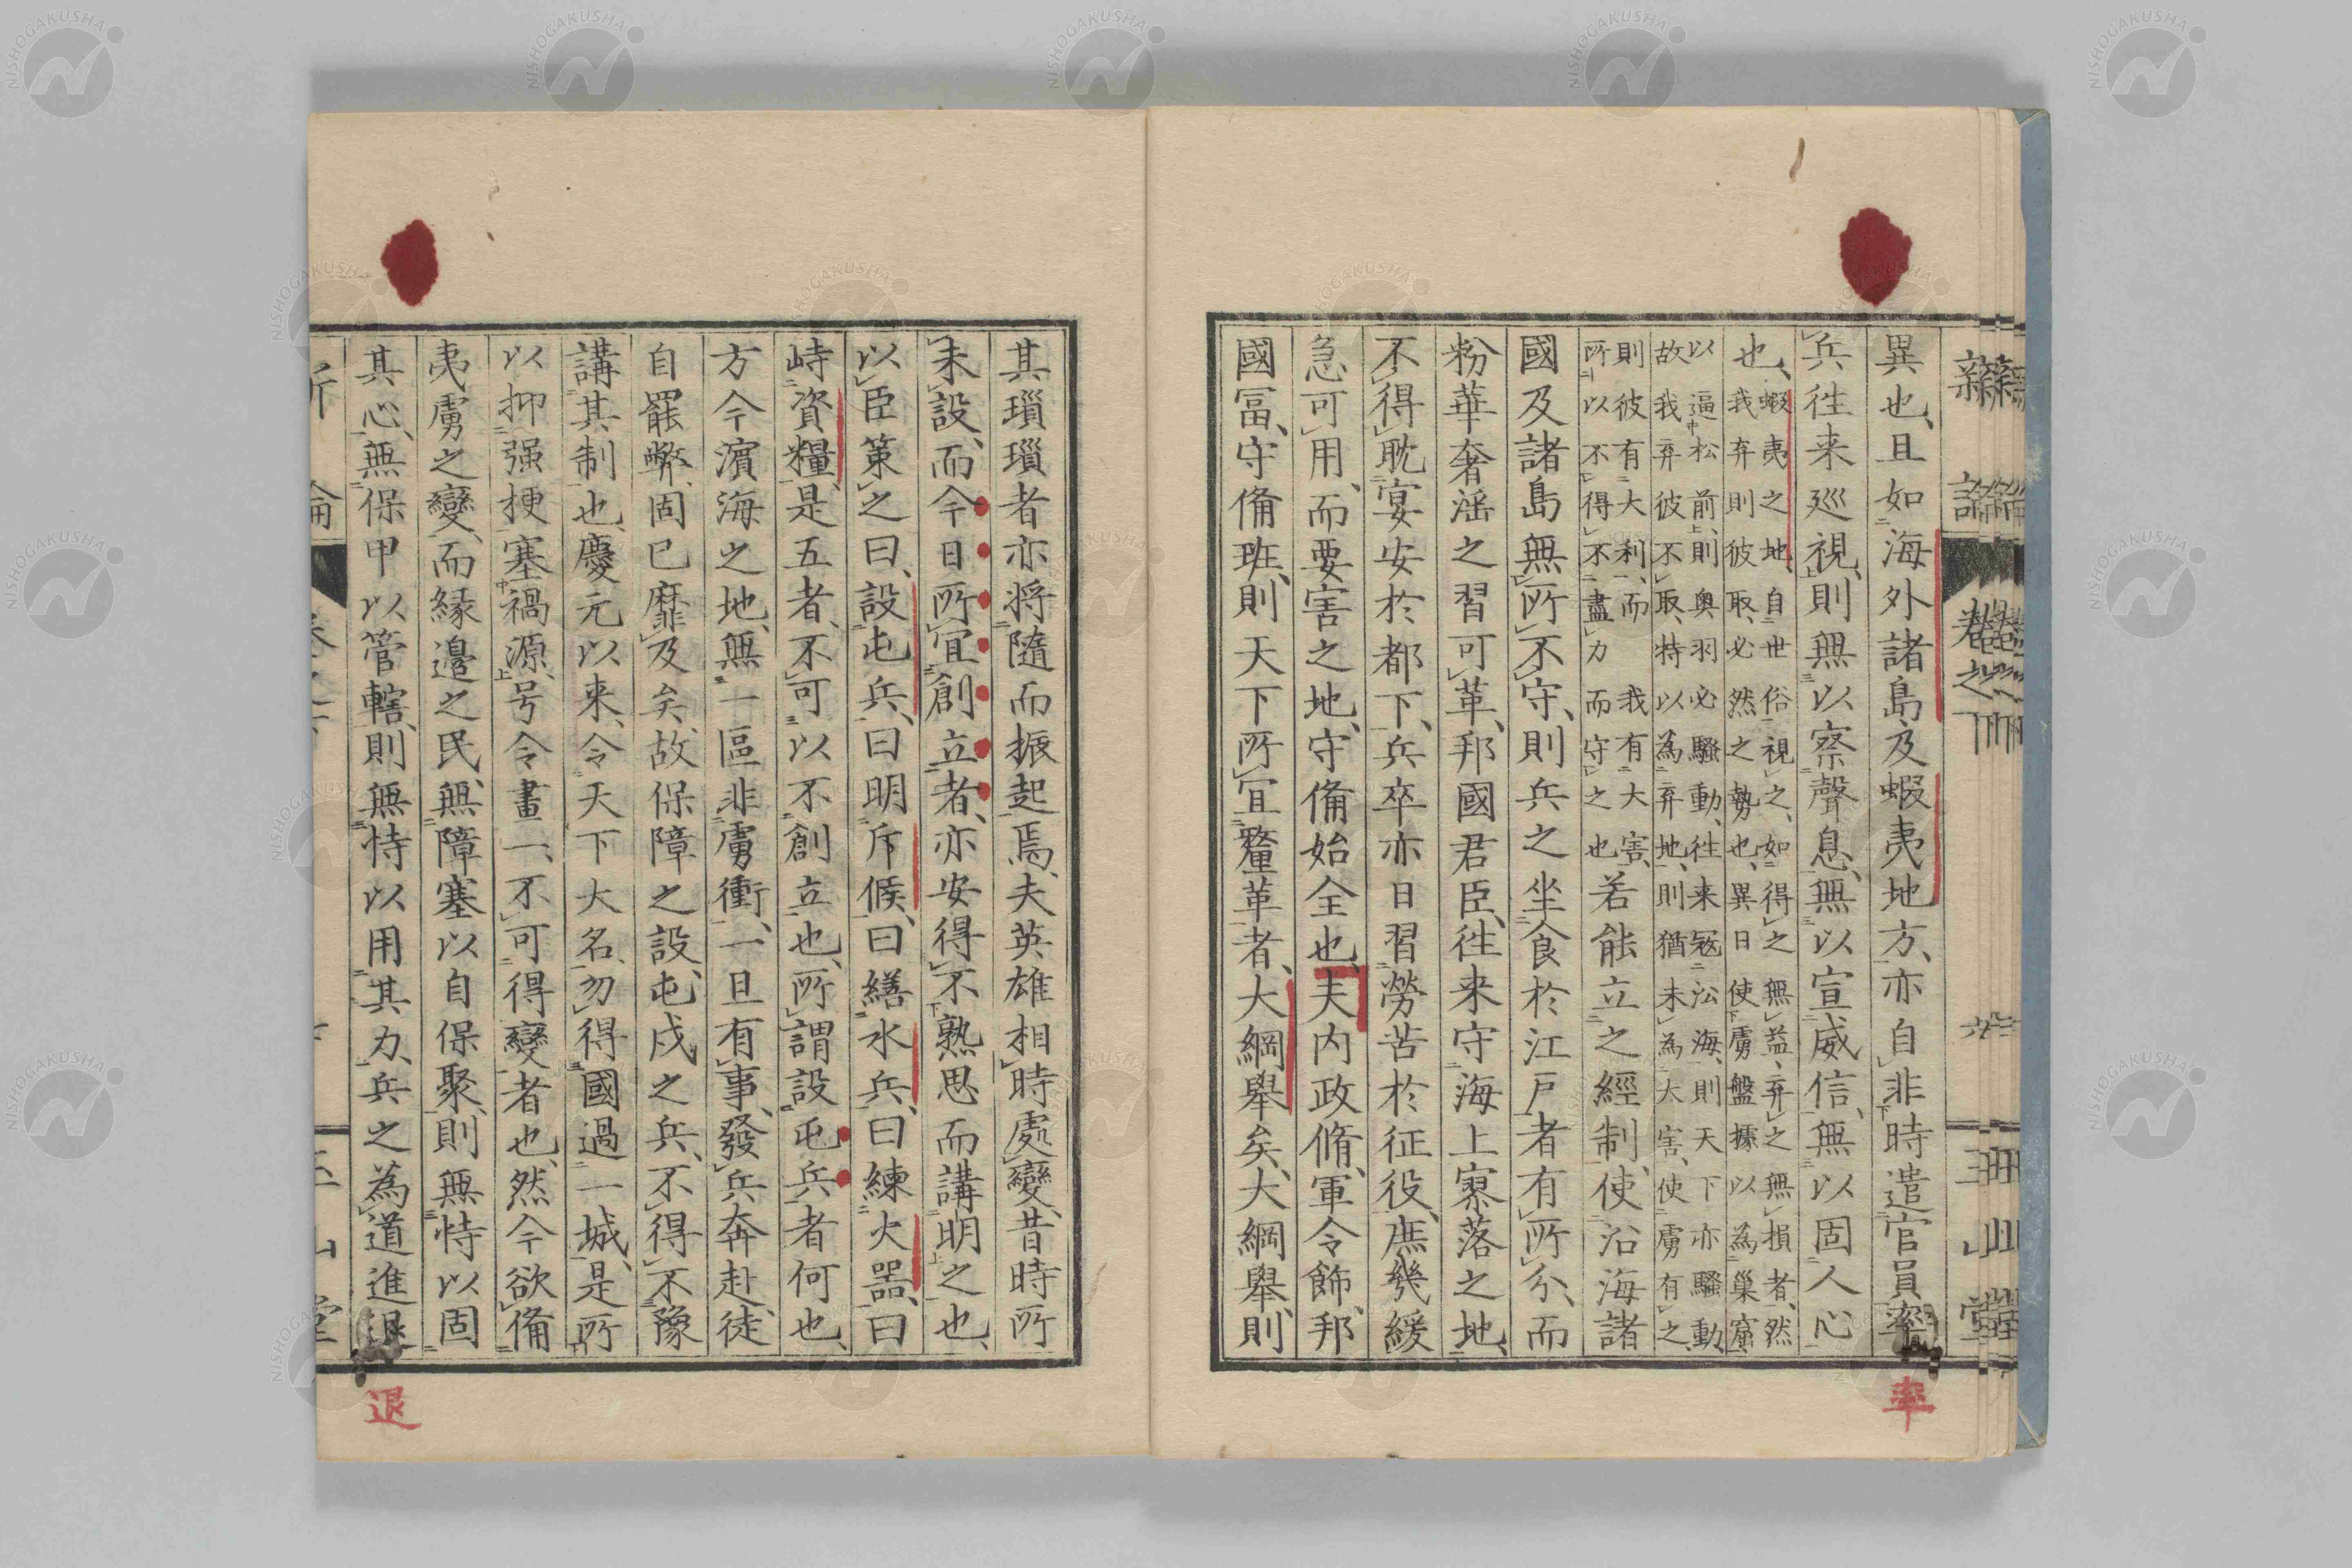 異也、且如海外諸島及蝦夷地方、亦自非時遣官員率
兵徃来巡視、則無以察聲息、無以宣威信、無以固人心
也、
蝦夷之地、自世俗視之、如得之無益、弃之無損者、然
我弃則彼取、必然之勢也、異日使虜盤據以為巢窟、
以逼松前、則奥羽必騷動、徃来冦㳂海、則天下亦騷動、
故我弃彼不取、特以為弃地、則猶未為大害、使虜有之、
則彼有大利、而我有大害、
所以不得不盡力而守之也
若能立之經制、使沿海諸
國及諸島無所不守、則兵之坐食於江戸者有所分、而
粉華奢滛之習可革、邦國君臣、徃来守海上寥落之地、
不得耽宴安於都下、兵卒亦日習勞苦於征役、庶幾緩
急可用、而要害之地、守備始全也、夫内政脩、軍令飭、邦
國冨、守備班、則天下所宜釐革者、大綱舉矣、大綱舉、則
其瑣瑣者亦将隨而振起焉、夫英雄相時處變、昔時所
未設、而今日所宜創立者、亦安得不熟思而講明之也、
以臣策之曰、設屯兵、曰明斥候、曰繕水兵、曰練火噐、曰
峙資糧、是五者、不可以不創立也、所謂設屯兵者何也、
方今濵海之地、無一區非虜衝、一旦有事、發兵奔赴、徒
自罷弊、固已靡及矣、故保障之設、屯戍之兵、不得不豫
講其制也、慶元以来、令天下大名、勿得國過一城、是所
以抑强梗塞禍源、号令畫一、不可得變者也、然今欲備
夷虜之變、而緣邊之民、無障塞以自保聚、則無恃以固
其心、無保甲以管轄、則無恃以用其力、兵之為道進退
率
退